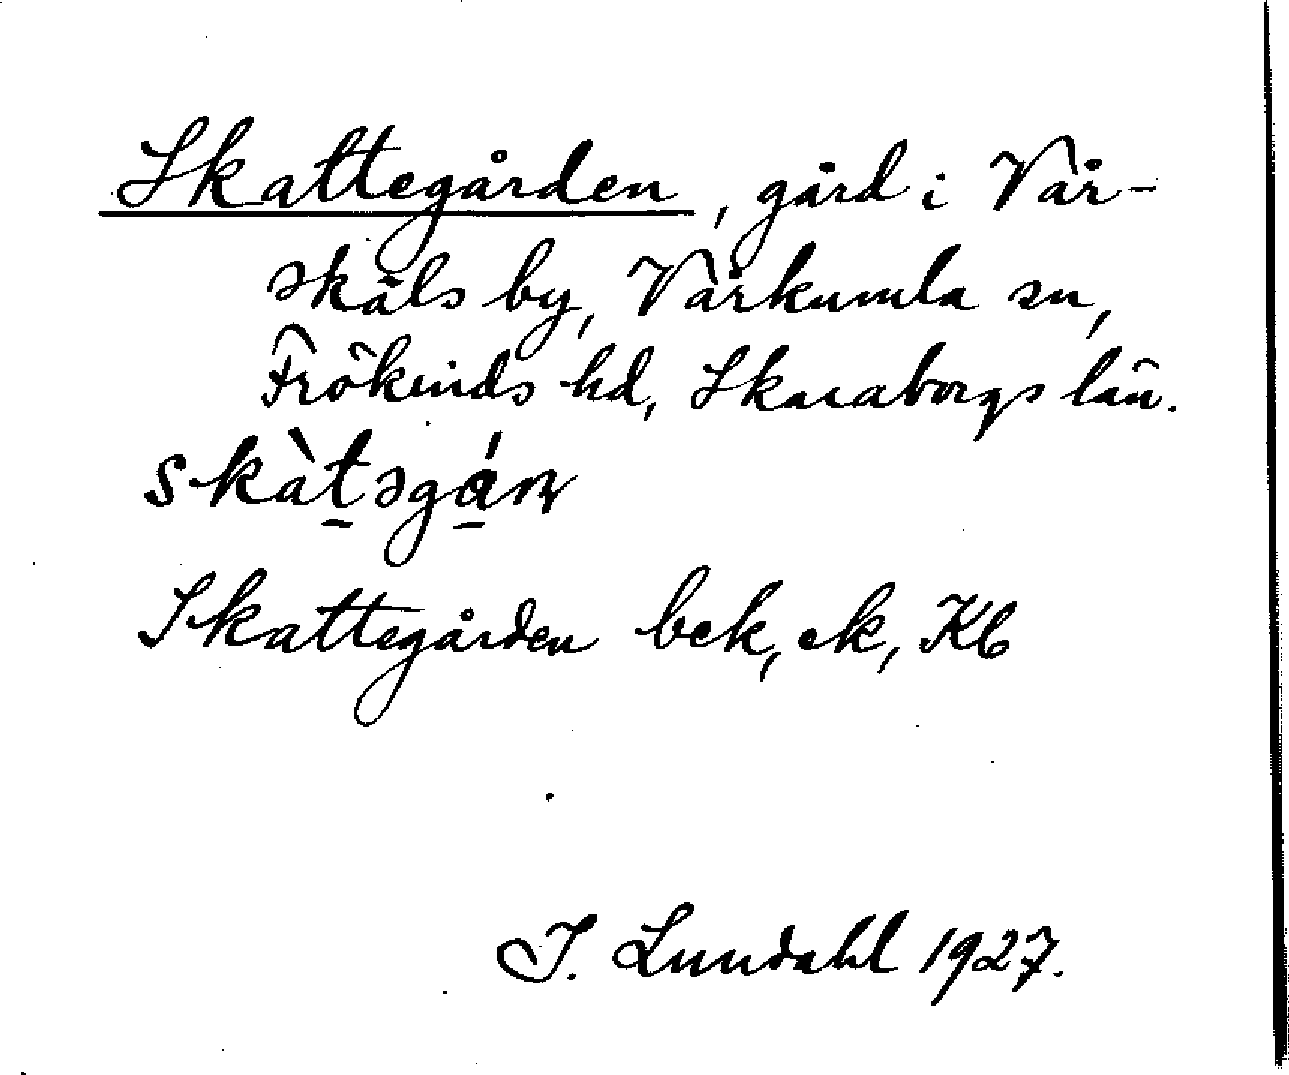 Skattegården, gård i Vår-
skäls by, Vårkumla sn,
Frökinds hd, Skaraborgs län.
Skattegården bek, ek, Kb
I. Lundahl 1927.